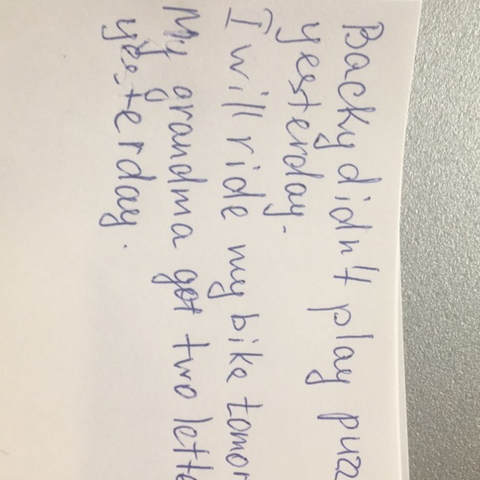 Backy didn't play puzz
yesterday.
I will ride my bike tomor
My grandma got two lette
yesterday.